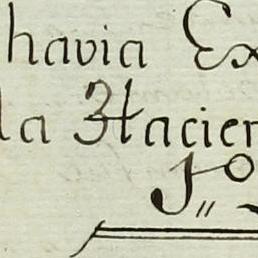 havia Ex
la Hacien